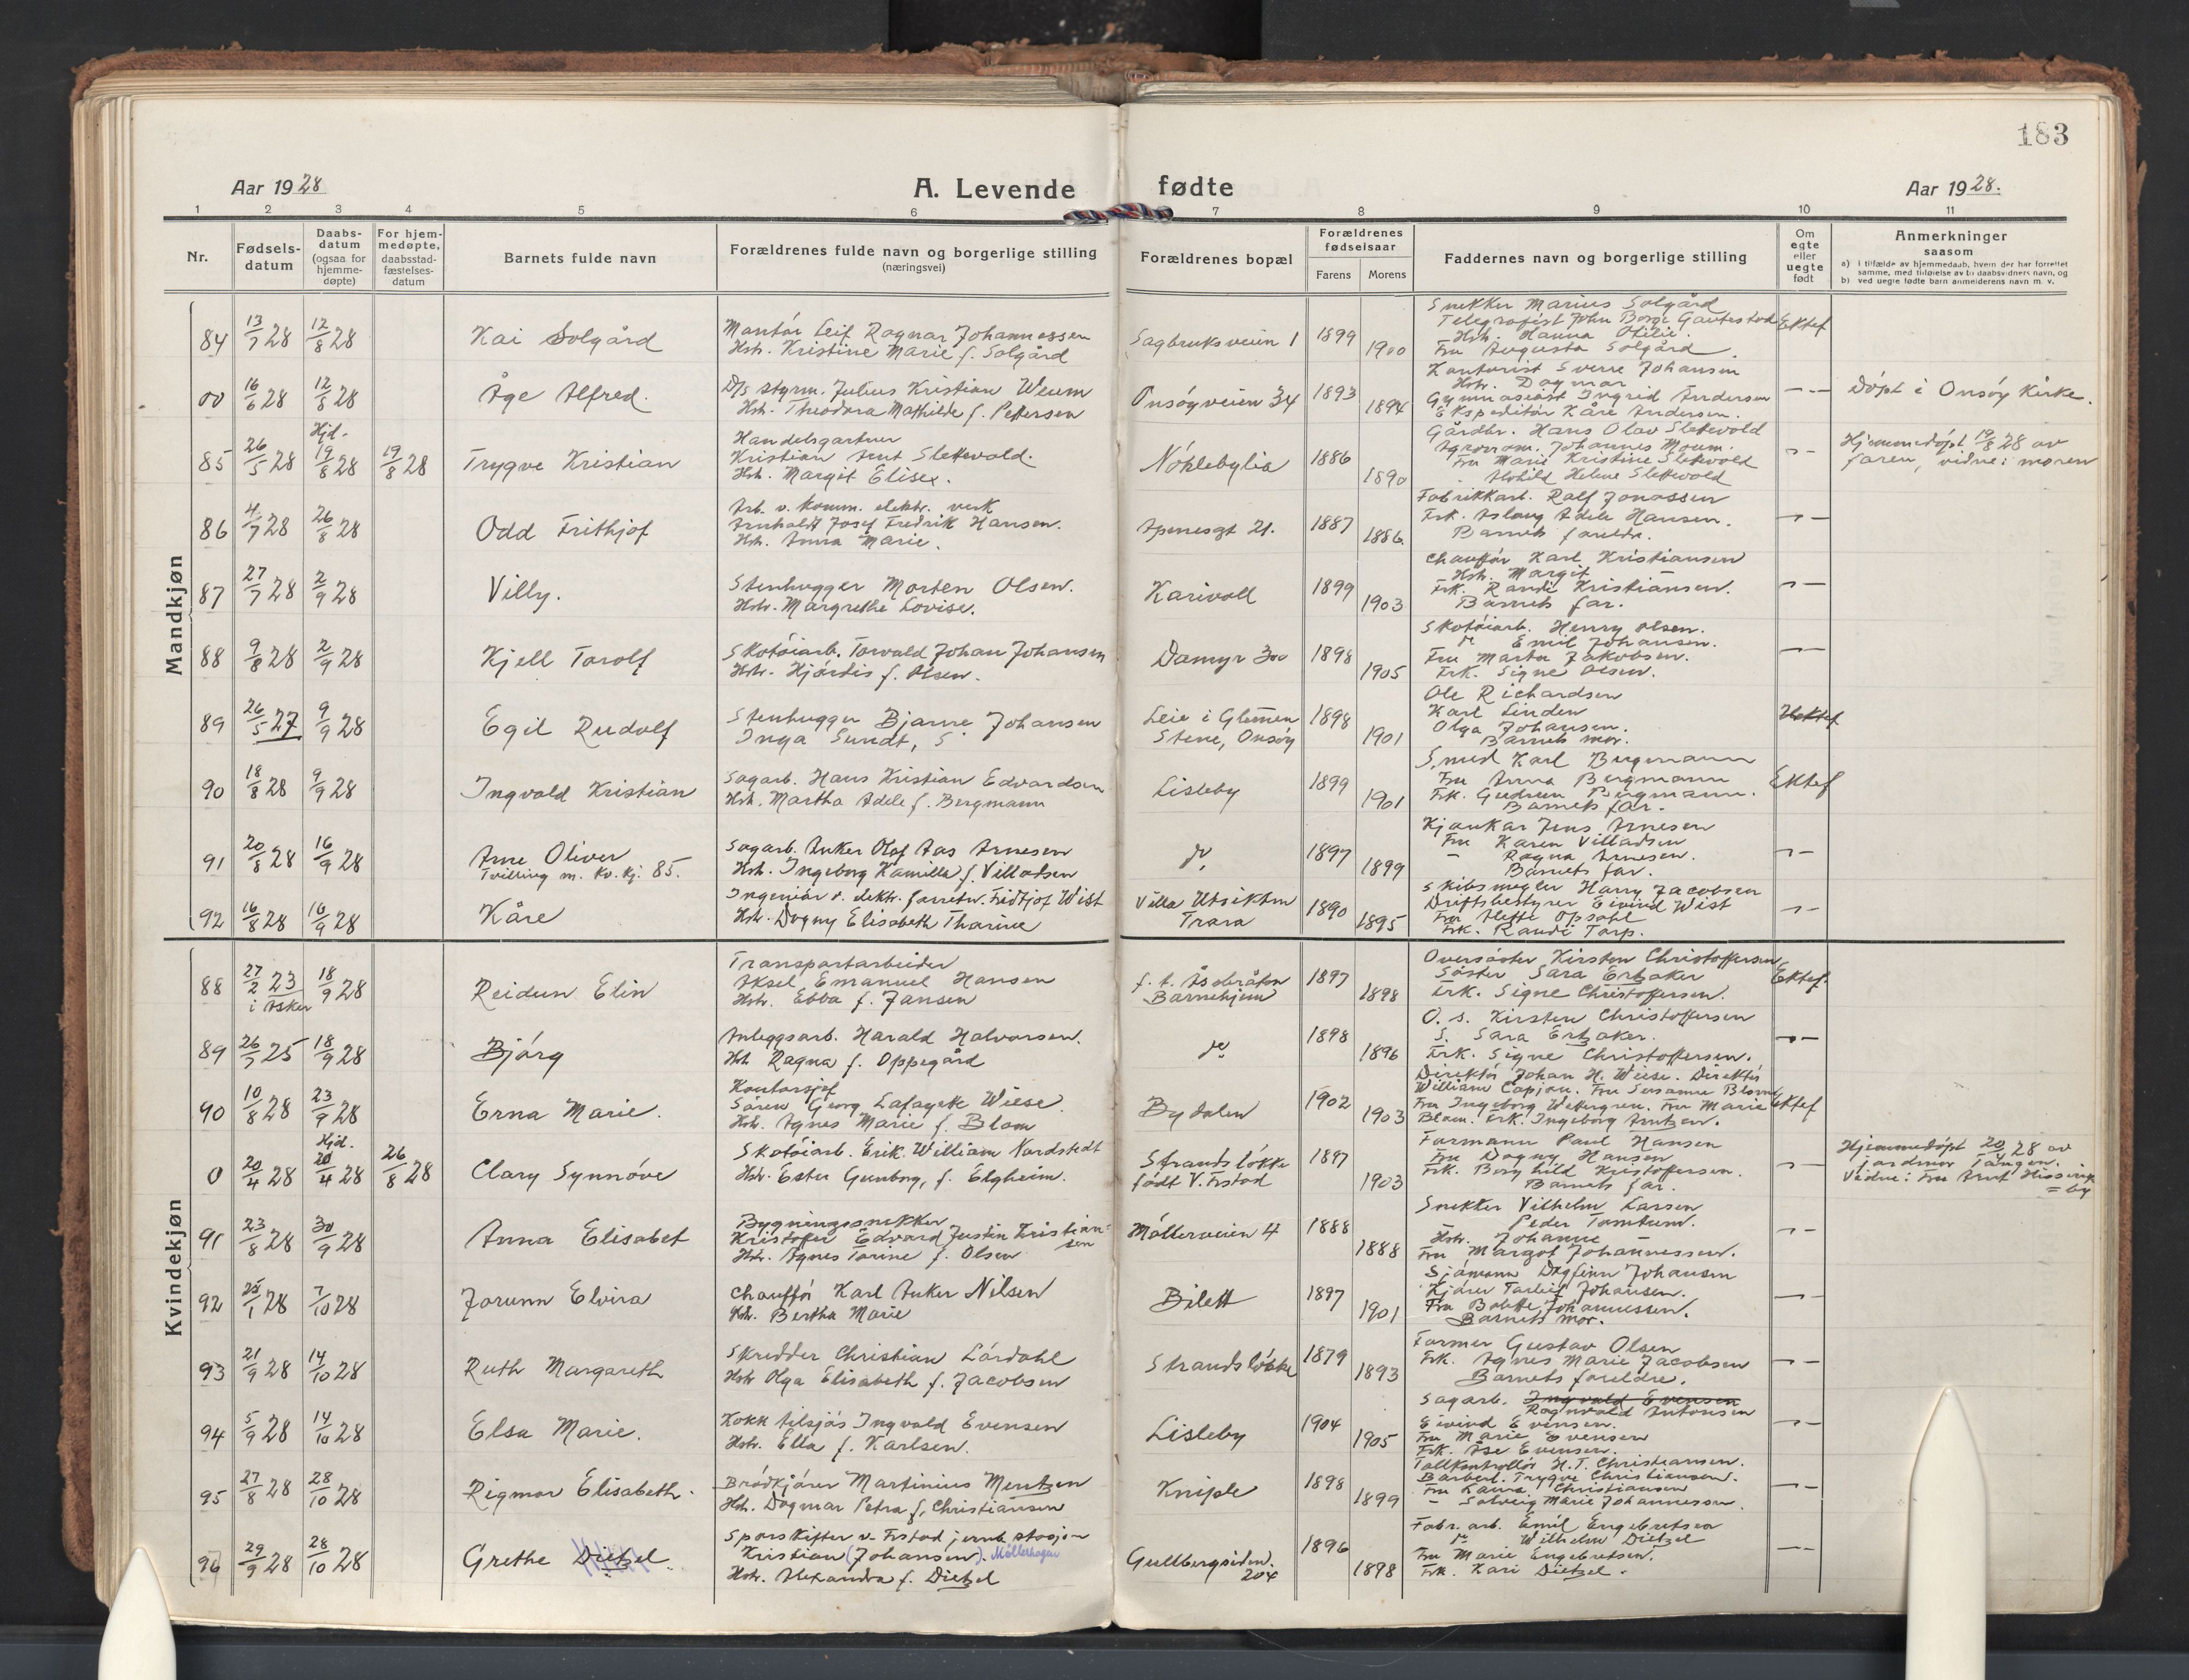 183
Aar 1928
A. Levende fødte
Aar 1928.
1 2 3 4 5 6 7 8 9 10 11
Nr.
Fødsels-
datum
Daabs-
datum
(ogsaa for
hjemme-
døpte)
For hjem-
medøpte,
daabsstad-
fæstelses-
datum
Barnets fulde navn
Forældrenes fulde navn og borgerlige stilling
(næringsvei)
Forældrenes bopæl
Forældrenes
fødselsaar
Farens Morens
Faddernes navn og borgerlige stilling
Om
egte
eller
uegte
født
Anmerkninger
saasom
a) i tilfælde av hjemmedaab, hvem der har forrettet
samme, med tilføielse av to daabsvidners navn, og
b) ved uegte fødte barn anmelderens navn m. v.
Mandkjøn
84 13/7 28 12/8 28 Kai Solgård
Montör Leif Ragnar Johannessen
Hstr. Kristine Marie f. Solgård
Sagbruksveien 1 1899 1900
Snekker Marius Solgård
Telegrafist John Borge Gautestad
Hstr. Hanna Otilie.
Fru Augusta Solgård.
Ektef
00 16/6 28 12/8 28 Åge Alfred.
D/s styrm. Julius Kristian Weum
Hstr. Theodora Mathilde f. Pettersen
Onsöyveien 34 1893 1894
Kontorist Sverre Johansen
Hstr. Dagmar
Gymnasiast Ingrid Andersen
Ekspeditör Kåre Andersen.
Döpt i Onsöy Kirke.
85 26/5 28 Hjd. 19/8 28 19/8 28 Trygve Kristian
Handelsgartner
Kristian Arnt Slettevold.
Hst. Margit Elise.
Nöklebylia 1886 1890
Gårdbr. Hans Olav Slettevold
Agronom. Johannes Moum.
Fru Marie Kristine Slettevold
Helene Slettevold
Hjemmedöpt 19/8 28 av
faren, vidne: moren
86 4/7 28 26/8 28 Odd Frithjof
Arb. v. komm. elektr. verk
Arnholdt Josef Fredrik Hansen.
Hst. Anna Marie.
Apenesgt 21. 1887 1886.
Fabrikkarb. Ralf Jonassen
Frk. Aslaug Adele Hansen.
Barnets foreldre.
87 27/7 28 2/9 28 Villy.
Stenhugger Morten Olsen.
Hstr. Margrethe Lovise.
Karivold 1899 1903
Chaufför Karl Kristiansen
Hstr. Margit
Frk. Randi Kristiansen.
Barnets far.
88 9/8 28 2/9 28 Kjell Torolf
Skotöiarb. Torvald Johan Johansen
Hstr. Hjördis f. Olsen.
Damyr 300 1898 1905
Skotöiarb. Henry Olsen.
do Emil Johansen.
Fru Marta Jakobsen.
Frk. Signe Olsen.
89 26/5 27 9/9 28 Egil Rudolf
Stenhugger Bjarne Johansen
Inga Sundt, S
Leie i Glemmen
Stene, Onsöy
1898 1901
Ole Richardsen
Karl Linden
Olga Johansen.
Barnets mor.
90 18/8 28 9/9 28 Ingvald Kristian
Sagarb. Hans Kristian Edvardsen
Hstr. Martha Adele f. Bergmann
Lisleby 1899 1901
Smed Karl Bergmann
Fru Anna Bergmann
Frk. Gudrun Bergmann.
Barnets far.
Ektef
91 20/8 28 16/9 28 Arne Oliver
Tvilling m. Kv. Kj. 85.
Sagarb. Anker Olaf Aas Arnesen
Hst. Ingeborg Kamilla f. Villadsen
do 1897 1899
Jens Arnesen
Fru Karen Villadsen
Ragna Arnesen.
Barnets far.
92 16/8 28 16/9 28 Kåre
Ingeniör v. elektr. forretn. Fridtjof Wist
Hst. Dagny Elisabeth Tharine
Villa Utsikten
Trara
1890 1895
Skibsmegler Harry Jacobsen
Driftsbestyrer Eivind Wist
Fru Opsahl
Frk. Randi Torp.
Kvindekjøn
88 27/2 23 i Asker 18/9 28 Reidun Elin
Transportarbeider
Aksel Emanuel Hansen
Hstr. Ebba f. Jansen
f. t.
Barnehjem
1897 1898
Oversöster Kirsten Christoffersen
Söster Sara Erbaker
Frk. Signe Christoffersen.
Ektef.
89 26/7 25 18/9 28 Björg
Anleggsarb. Harald Halvorsen.
Hst Ragna f. Oppegård
do 1898 1896
O. s. Kirsten Christoffersen
S. Sara Erbaker.
Frk. Signe Christoffersen.
90 10/8 28 23/9 28 Erna Marie.
Kontorsjef
Sören Georg Lafayette Wiese
Hst. Agnes Marie f. Blom
Bydalen 1902 1903
Direktör Johan H. Wiese. Direktör
William Capjon. Fru Susanne Blom
Fru Ingeborg Wettergren. Fru Marie
Blom. Frk. Ingeborg Arntzen.
Ektef
0 20/4 28 Hjd. 20/4 28 26/8 28 Clary Synnöve
Skotöiarb. Erik William Nordstedt
Hstr. Ester Gunborg, f. Elgheim.
Strandslökke
födt V. Frstad
1897 1903
Formann Paul Hansen
Fru Dagny Hansen
Frk. Borghild Kristoffersen.
Barnets far.
Hjemmedöpt 20/4 28 av
jordmor Tangen.
Vidne: Fru Arnt Hissingby
91 23/8 28 30/9 28 Anna Elisabet
Bygningssnekker
Kristofer Edvard Justin Kristian=
sen
Hstr. Agnes Torine f. Olsen
Mölleveien 4 1888 1888
Snekker Vilhelm Larsen
Peder Tomtum.
Hstr. Johanne
Fru Margot Johannessen.
92 25/1 28 7/10 28 Jorunn Elvira
Chaufför Karl Anker Nilsen
Hstr. Bertha Marie
Bilett 1897 1901
Sjömann Dagfinn Johansen
Torleif Johansen.
Fru Bolette Johannessen.
Barnets mor.
93 21/9 28 14/10 28 Ruth Margareth
Skredder Christian Lördahl
Hstr Olga Elisabeth f. Jacobsen
Strandslökke 1879 1893
Former Gustav Olsen
Frk. Agnes Marie Jacobsen
Barnets foreldre.
94 5/9 28 14/10 28 Elsa Marie.
Kokk tilsjös Ingvald Evensen
Hstr. Ella f. Karlsen.
Lisleby 1904 1905
Sagarb. Ingvald Evensen
Ragnvald Antonsen
Eivind Evensen.
Fru Marie Evensen
Frk. Åse Evensen.
95 27/8 28 28/10 28 Rigmor Elisabeth.
Brödkjörer Martinius Mentzen
Hst. Dagmar Petra f. Christiansen
Kniple 1898 1899
Tollkontrollör H. T. Christiansen.
Barberl. Trygve Christiansen.
Fru Laura Christiansen
Solveig Marie Johannessen.
96 29/9 28 28/10 28 Grethe Dietzel.
Sporskifter v. Frstad jernb. stasjon
Kristian (Johansen). Möllerhagen
Hstr. Alexandra f. Dietzel
Gullbergsiden.
204
1896 1898
Fabr. arb. Emil Engebretsen
do Wilhelm Dietzel
Fru Marie Engebretsen.
Frk. Kari Dietzel.